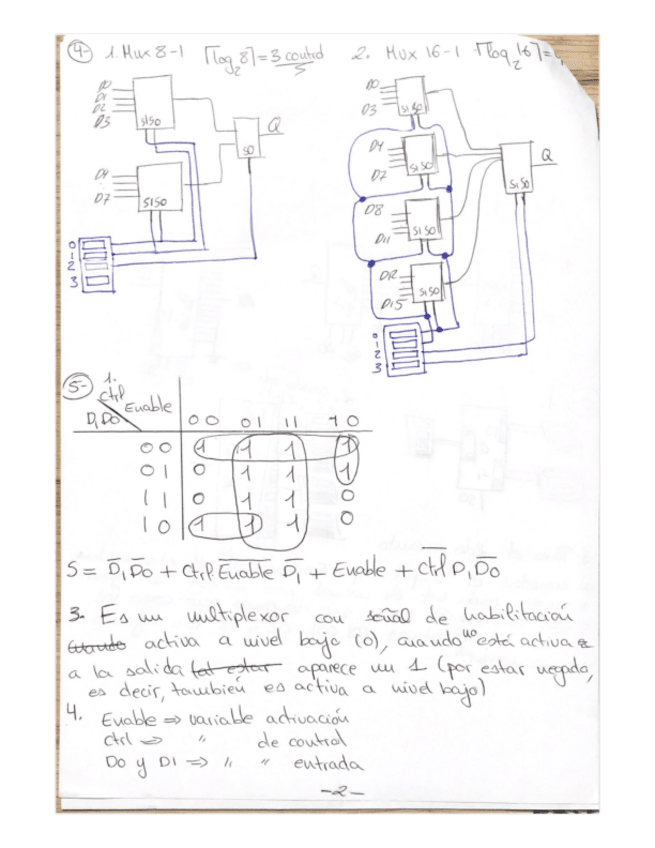 4- 1. Mux 8-1 ⌈log₂8⌉=3 control 2. Mux 16-1 ⌈log₂16⌉=4
D0
D1
D2
D3
S1 S0
D4
D7
S1 S0
S0
Q
0
1
2
3
D0
D3
S1 S0
D4
D7
S1 S0
D8
D11
S1 S0
D12
D15
S1 S0
S1 S0
Q
0
1
2
3
5- 1.
Ctrl Enable
D1D0 00 01 11 10
00 1 1 1 1
01 0 1 1 1
11 0 1 1 0
10 1 1 1 0
S = D̅₁D̅o + Ctrl E̅n̅a̅b̅l̅e̅ D̅₁ + Enable + C̅t̅r̅l̅ D₁D̅o
3. Es un multiplexor con señal de habilitación
cuando activa a nivel bajo (0), cuando no está activa
a la salida aparece un 1 (por estar negado,
es decir, también es activa a nivel bajo)
4. Enable => variable activación
Ctrl => " de control
Do y D1 => " " entrada
-2-